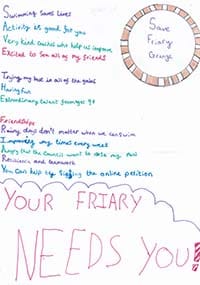 Swimming Saves Lives
Activity is good for you
Very kind coaches who help us improve
Excited to see all of my friends
Trying my best in all of the galas
Having fun
Extraordinary talent youngest 9+
Friendships
Rainy days don't matter when we can swim
Improving my times every week
Angry that the Council want to close my pool
Resilience and teamwork
You can help by signing the online petition
Save
Friary
Grange
YOUR FRIARY
NEEDS YOU!